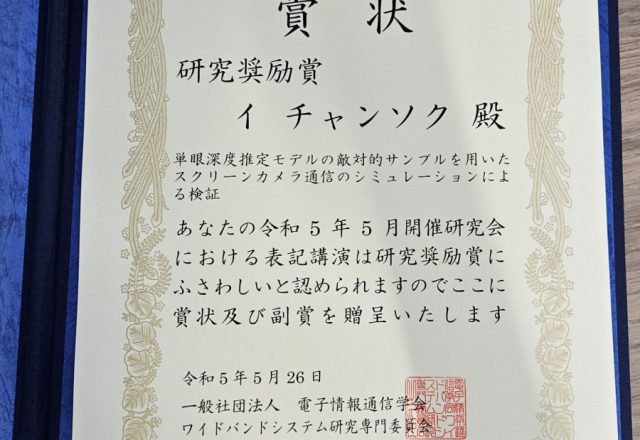 賞状
研究奨励賞
イ チャンソク 殿
単眼深度推定モデルの敵対的サンプルを用いた
スクリーンカメラ通信のシミュレーションによ
る検証
あなたの令和5年5月開催研究会
における表記講演は研究奨励賞に
ふさわしいと認められますのでここに
賞状及び副賞を贈呈いたします
令和5年5月26日
一般社団法人 電子情報通信学会
ワイドバンドシステム研究専門委員会